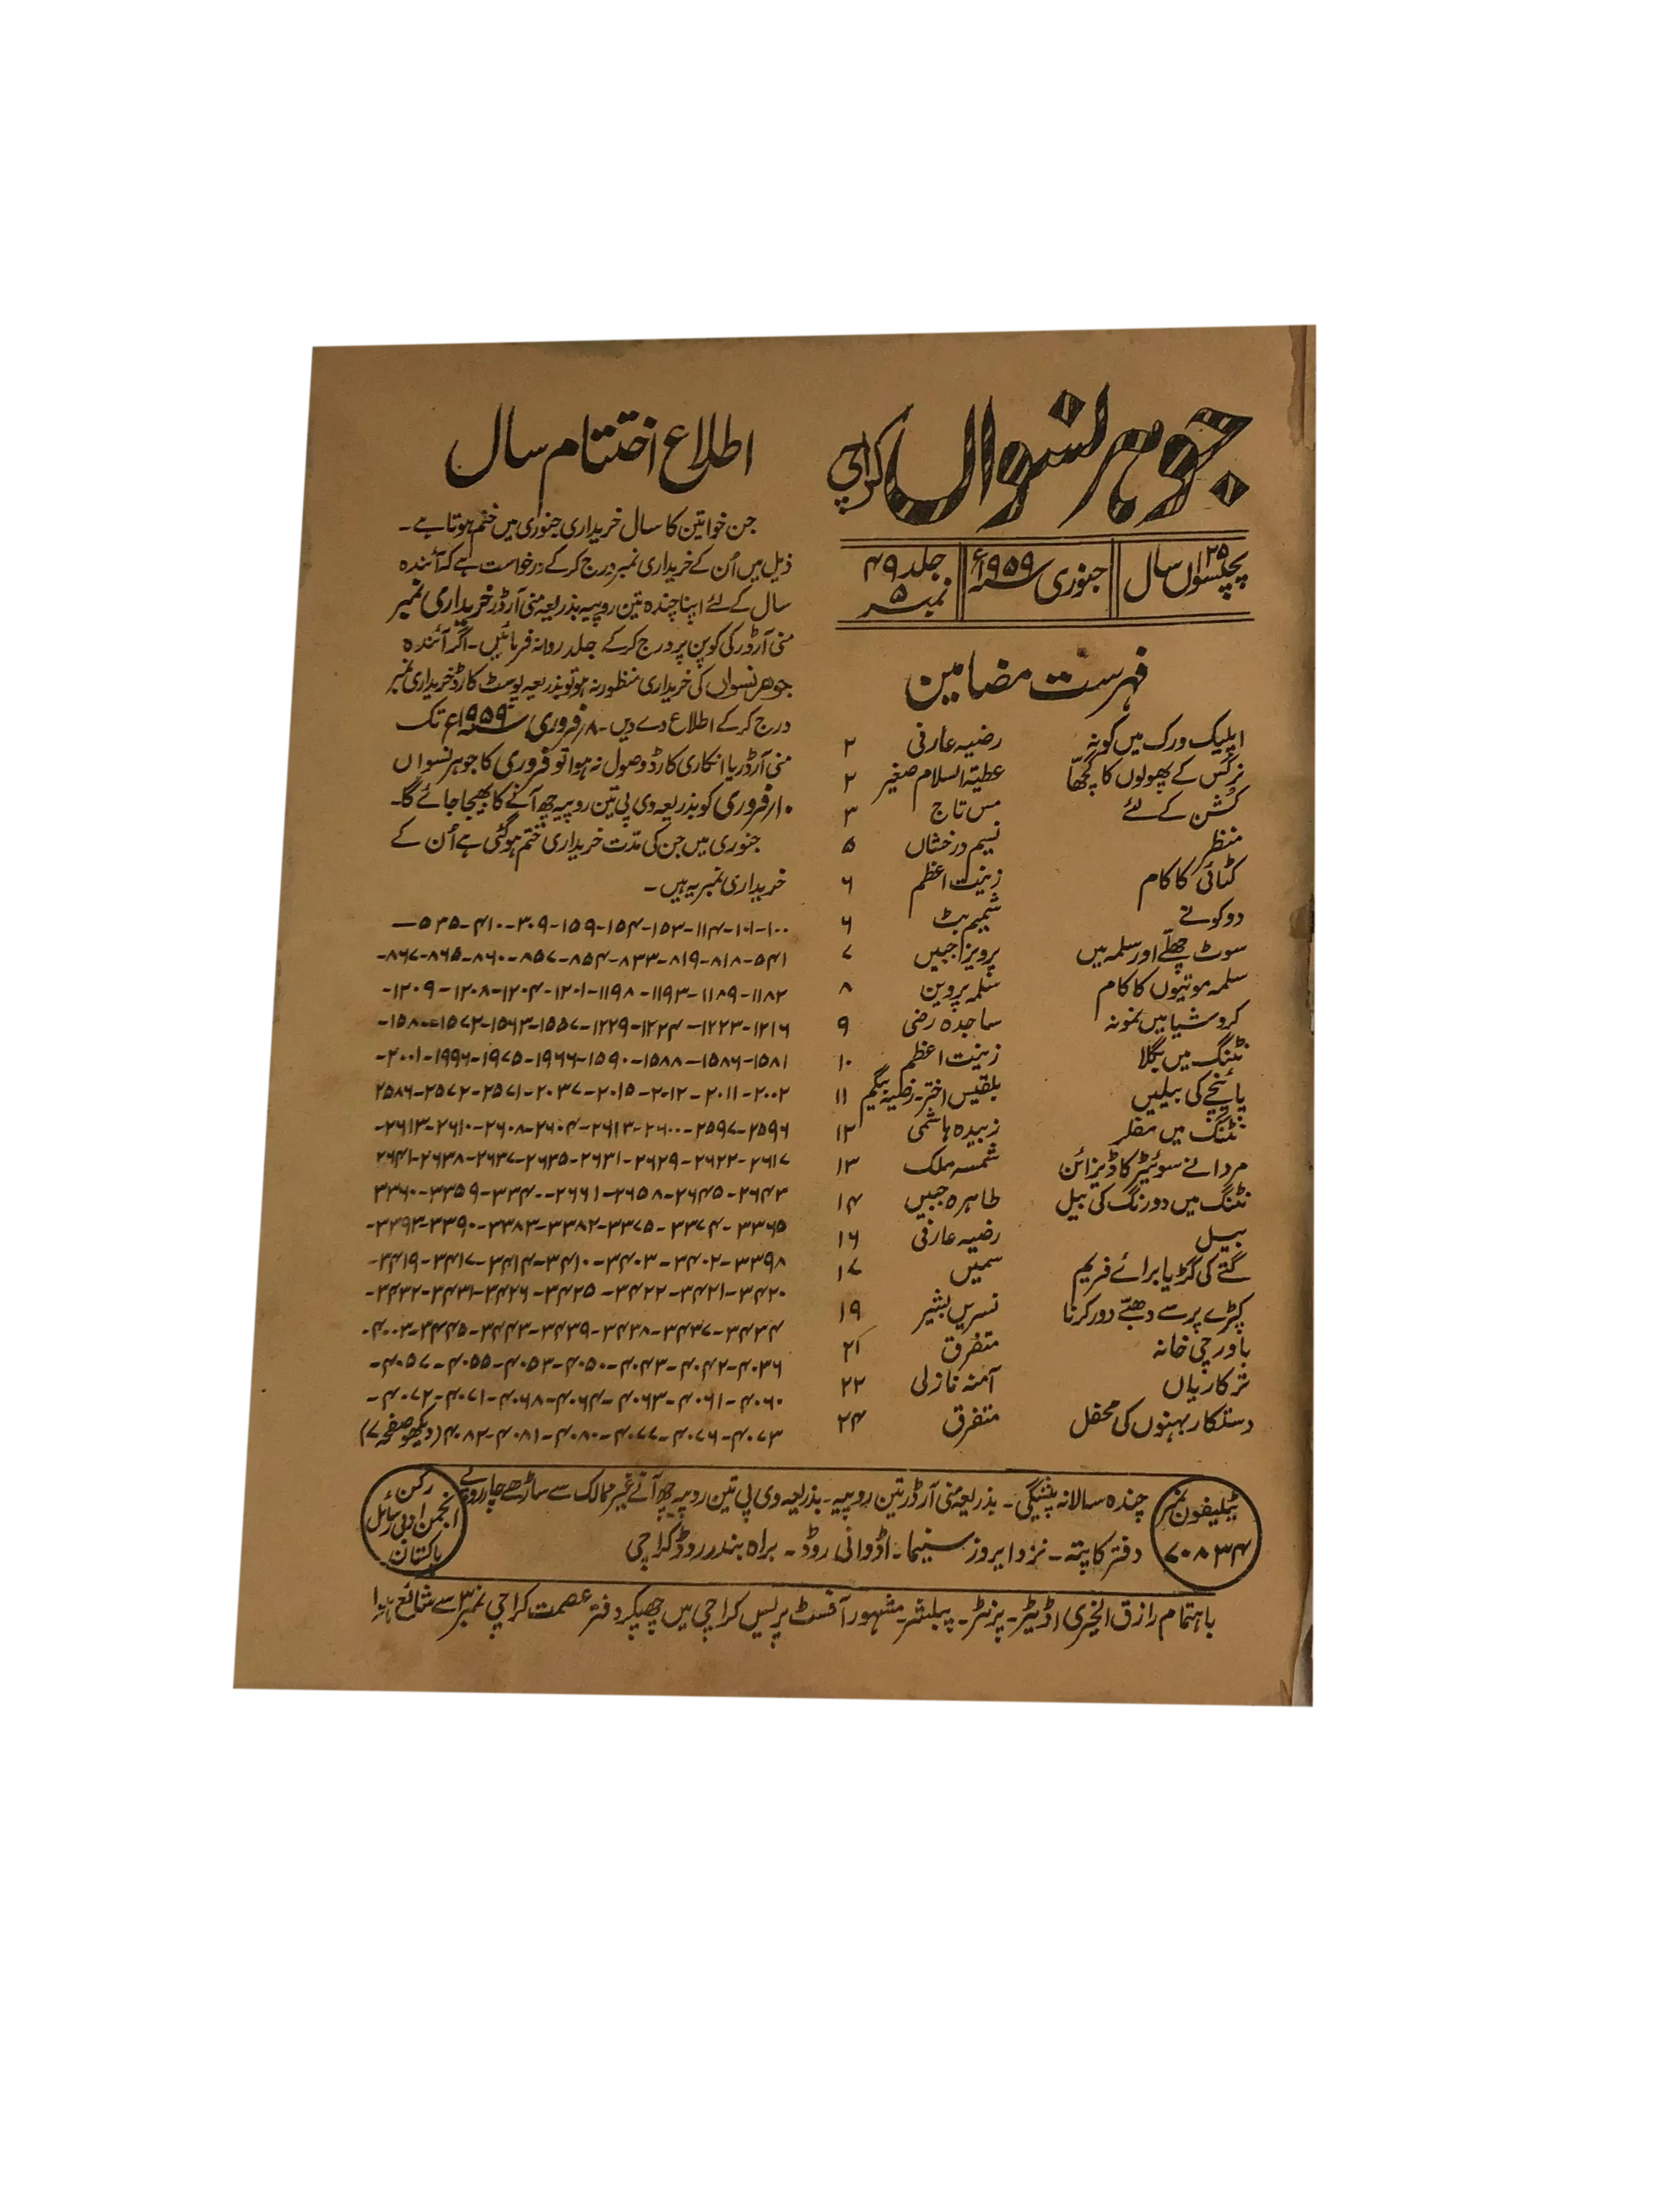 جوہر نسواں کراچی
پچیسواں ۲۵ سال
جنوری ۱۹۵۹ء
جلد ۴۹
نمبر ۵
فہرست مضامین
اپلیک ورک میں کونہ رضیہ عارفی ۲
نرگس کے پھولوں کا گچھا عطیۃ السلام صغیر ۲
کُشن کے لئے مس تاج ۳
منظر نسیم درخشاں ۵
کٹائی کا کام زینت اعظم ۶
دو کونے شمیم بٹ ۶
سوٹ چھلّے اور سلمہ میں پرویز اجبیں ۷
سلمہ موتیوں کا کام سلمہ پروین ۸
کروشیا میں نمونہ ساجدہ رضی ۹
نٹنگ میں بگلا زینت اعظم ۱۰
پائنچے کی بیلیں بلقیس اختر۔ رضیہ بیگم ۱۱
نٹنگ میں مفلر زبیدہ ہاشمی ۱۲
مردانے سوئیٹر کا ڈیزائن شمسہ ملک ۱۳
نٹنگ میں دو رنگ کی بیل طاہرہ جبیں ۱۴
بیل رضیہ عارفی ۱۶
گتے کی گڑیا برائے فریم سمیں ۱۷
کپڑے پر سے دھبے دور کرنا نسریں بشیر ۱۹
باورچی خانہ متفرق ۲۱
ترکاریاں آمنہ نازلی ۲۲
دستکار بہنوں کی محفل متفرق ۲۴
اطلاع اختتام سال
جن خواتین کا سال خریداری جنوری میں ختم ہوتا ہے۔
ذیل میں اُن کے خریداری نمبر درج کرکے درخواست ہے کہ آئندہ
سال کے لئے اپنا چندہ تین روپیہ بذریعہ منی آرڈر خریداری نمبر
منی آرڈر کی کوپن پر درج کرکے جلد روانہ فرمائیں۔ اگر آئندہ
جوہر نسواں کی خریداری منظور نہ ہو تو بذریعہ پوسٹ کارڈ خریداری نمبر
درج کرکے اطلاع دے دیں۔ ۸ر فروری ۱۹۵۹ء تک
منی آرڈر یا انکاری کارڈ وصول نہ ہوا تو فروری کا جوہر نسواں
۱۰ر فروری کو بذریعہ وی پی تین روپیہ چھ آنے کا بھیجا جائے گا۔
جنوری میں جن کی مدت خریداری ختم ہوگئی ہے اُن کے
خریداری نمبر یہ ہیں۔
۱۰۰-۱۰۱-۱۱۴-۱۵۳-۱۵۴-۱۵۹-۳۰۹-۴۱۰-۵۳۵-
۵۴۱-۸۱۸-۸۱۹-۸۳۳-۸۵۴-۸۵۷-۸۶۰-۸۶۵-۸۶۷-
۱۱۸۲-۱۱۸۹-۱۱۹۳-۱۱۹۸-۱۲۰۱-۱۲۰۴-۱۲۰۸-۱۲۰۹-
۱۲۱۶-۱۲۲۳-۱۲۲۴-۱۲۲۹-۱۵۵۷-۱۵۶۳-۱۵۷۲-۱۵۸۰-
۱۵۸۱-۱۵۸۶-۱۵۸۸-۱۵۹۰-۱۹۶۶-۱۹۷۵-۱۹۹۶-۲۰۰۱-
۲۰۰۲-۲۰۱۱-۲۰۱۲-۲۰۱۵-۲۰۳۷-۲۵۷۱-۲۵۷۲-۲۵۸۶
۲۵۹۶-۲۵۹۷-۲۶۰۰-۲۶۱۳-۲۶۰۴-۲۶۰۸-۲۶۱۰-۲۶۱۳-
۲۶۱۷-۲۶۲۲-۲۶۲۹-۲۶۳۱-۲۶۳۵-۲۶۳۷-۲۶۳۸-۲۶۴۱
۲۶۴۳-۲۶۴۵-۲۶۵۸-۲۶۶۱-۳۳۴۰-۳۳۵۹-۳۳۶۰
۳۳۶۵-۳۳۷۴-۳۳۷۵-۳۳۸۲-۳۳۸۳-۳۳۹۰-۳۳۹۳-
۳۳۹۸-۳۴۰۲-۳۴۰۳-۳۴۱۰-۳۴۱۴-۳۴۱۷-۳۴۱۹-
۳۴۲۰-۳۴۲۱-۳۴۲۲-۳۴۲۵-۳۴۲۶-۳۴۳۱-۳۴۳۲-
۳۴۳۴-۳۴۳۷-۳۴۳۸-۳۴۳۹-۳۴۴۳-۳۴۴۵-۴۰۰۳-
۴۰۳۶-۴۰۴۲-۴۰۴۳-۴۰۵۰-۴۰۵۳-۴۰۵۵-۴۰۵۷-
۴۰۶۰-۴۰۶۱-۴۰۶۳-۴۰۶۴-۴۰۶۸-۴۰۷۱-۴۰۷۲-
۴۰۷۳-۴۰۷۶-۴۰۷۷-۴۰۸۰-۴۰۸۱-۴۰۸۲ (دیکھو صفحہ ۷)
ٹیلیفون نمبر
۷۰۸۳۴
چندہ سالانہ پیشگی۔ بذریعہ منی آرڈر تین روپیہ۔ بذریعہ وی پی تین روپیہ چھ آنے غیر ممالک سے ساڑھے چار روپے
دفتر کا پتہ۔ نزد ایروز سنیما۔ اڈوانی روڈ۔ براہ بندر روڈ کراچی
رکن
انجمن ادبی رسائل
پاکستان
باہتمام رازق الخیری اڈیٹر۔ پرنٹر۔ پبلشر۔ مشہور آفسٹ پریس کراچی میں چھپکر دفتر عصمت کراچی نمبر ۳ سے شائع ہوا